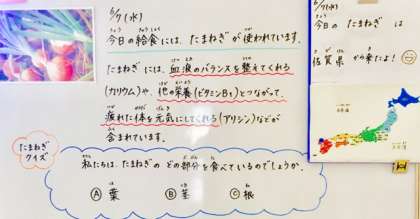 6/7(水)
今日の給食には、たまねぎが使われています。
たまねぎには、血液のバランスを整えてくれる
(カリウム)や、他の栄養(ビタミンB1)とつながって、
疲れた体を元気にしてくれる(アリシン)などが
含まれています。
たまねぎ
クイズ
私たちは、たまねぎのどの部分を食べているのでしょうか。
Ⓐ葉 Ⓑ茎 Ⓒ根
6/7(水)
今日のたまねぎは
佐賀県から来たよ!